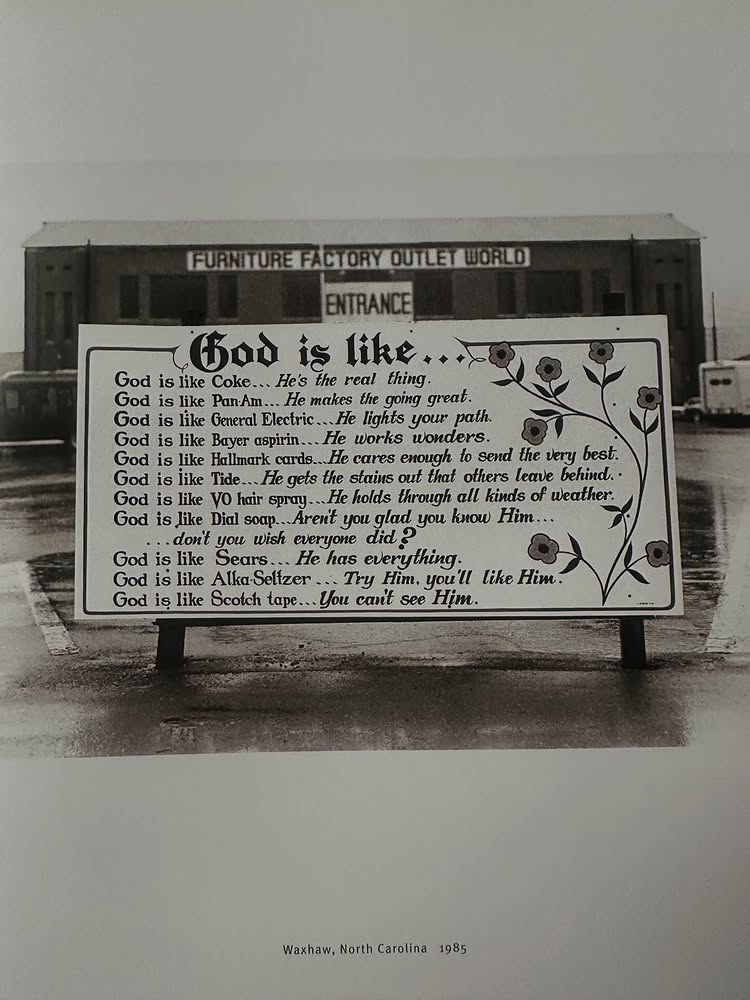 FURNITURE FACTORY OUTLET WORLD
ENTRANCE
God is like...
God is like Coke... He's the real thing.
God is like Pan-Am... He makes the going great.
God is like General Electric... He lights your path.
God is like Bayer aspirin... He works wonders.
God is like Hallmark cards... He cares enough to send the very best.
God is like Tide... He gets the stains out that others leave behind.
God is like VO hair spray... He holds through all kinds of weather.
God is like Dial soap... Aren't you glad you know Him...
...don't you wish everyone did?
God is like Sears... He has everything.
God is like Alka-Seltzer ... Try Him, you'll like Him.
God is like Scotch tape... You can't see Him.
Waxhaw, North Carolina 1985